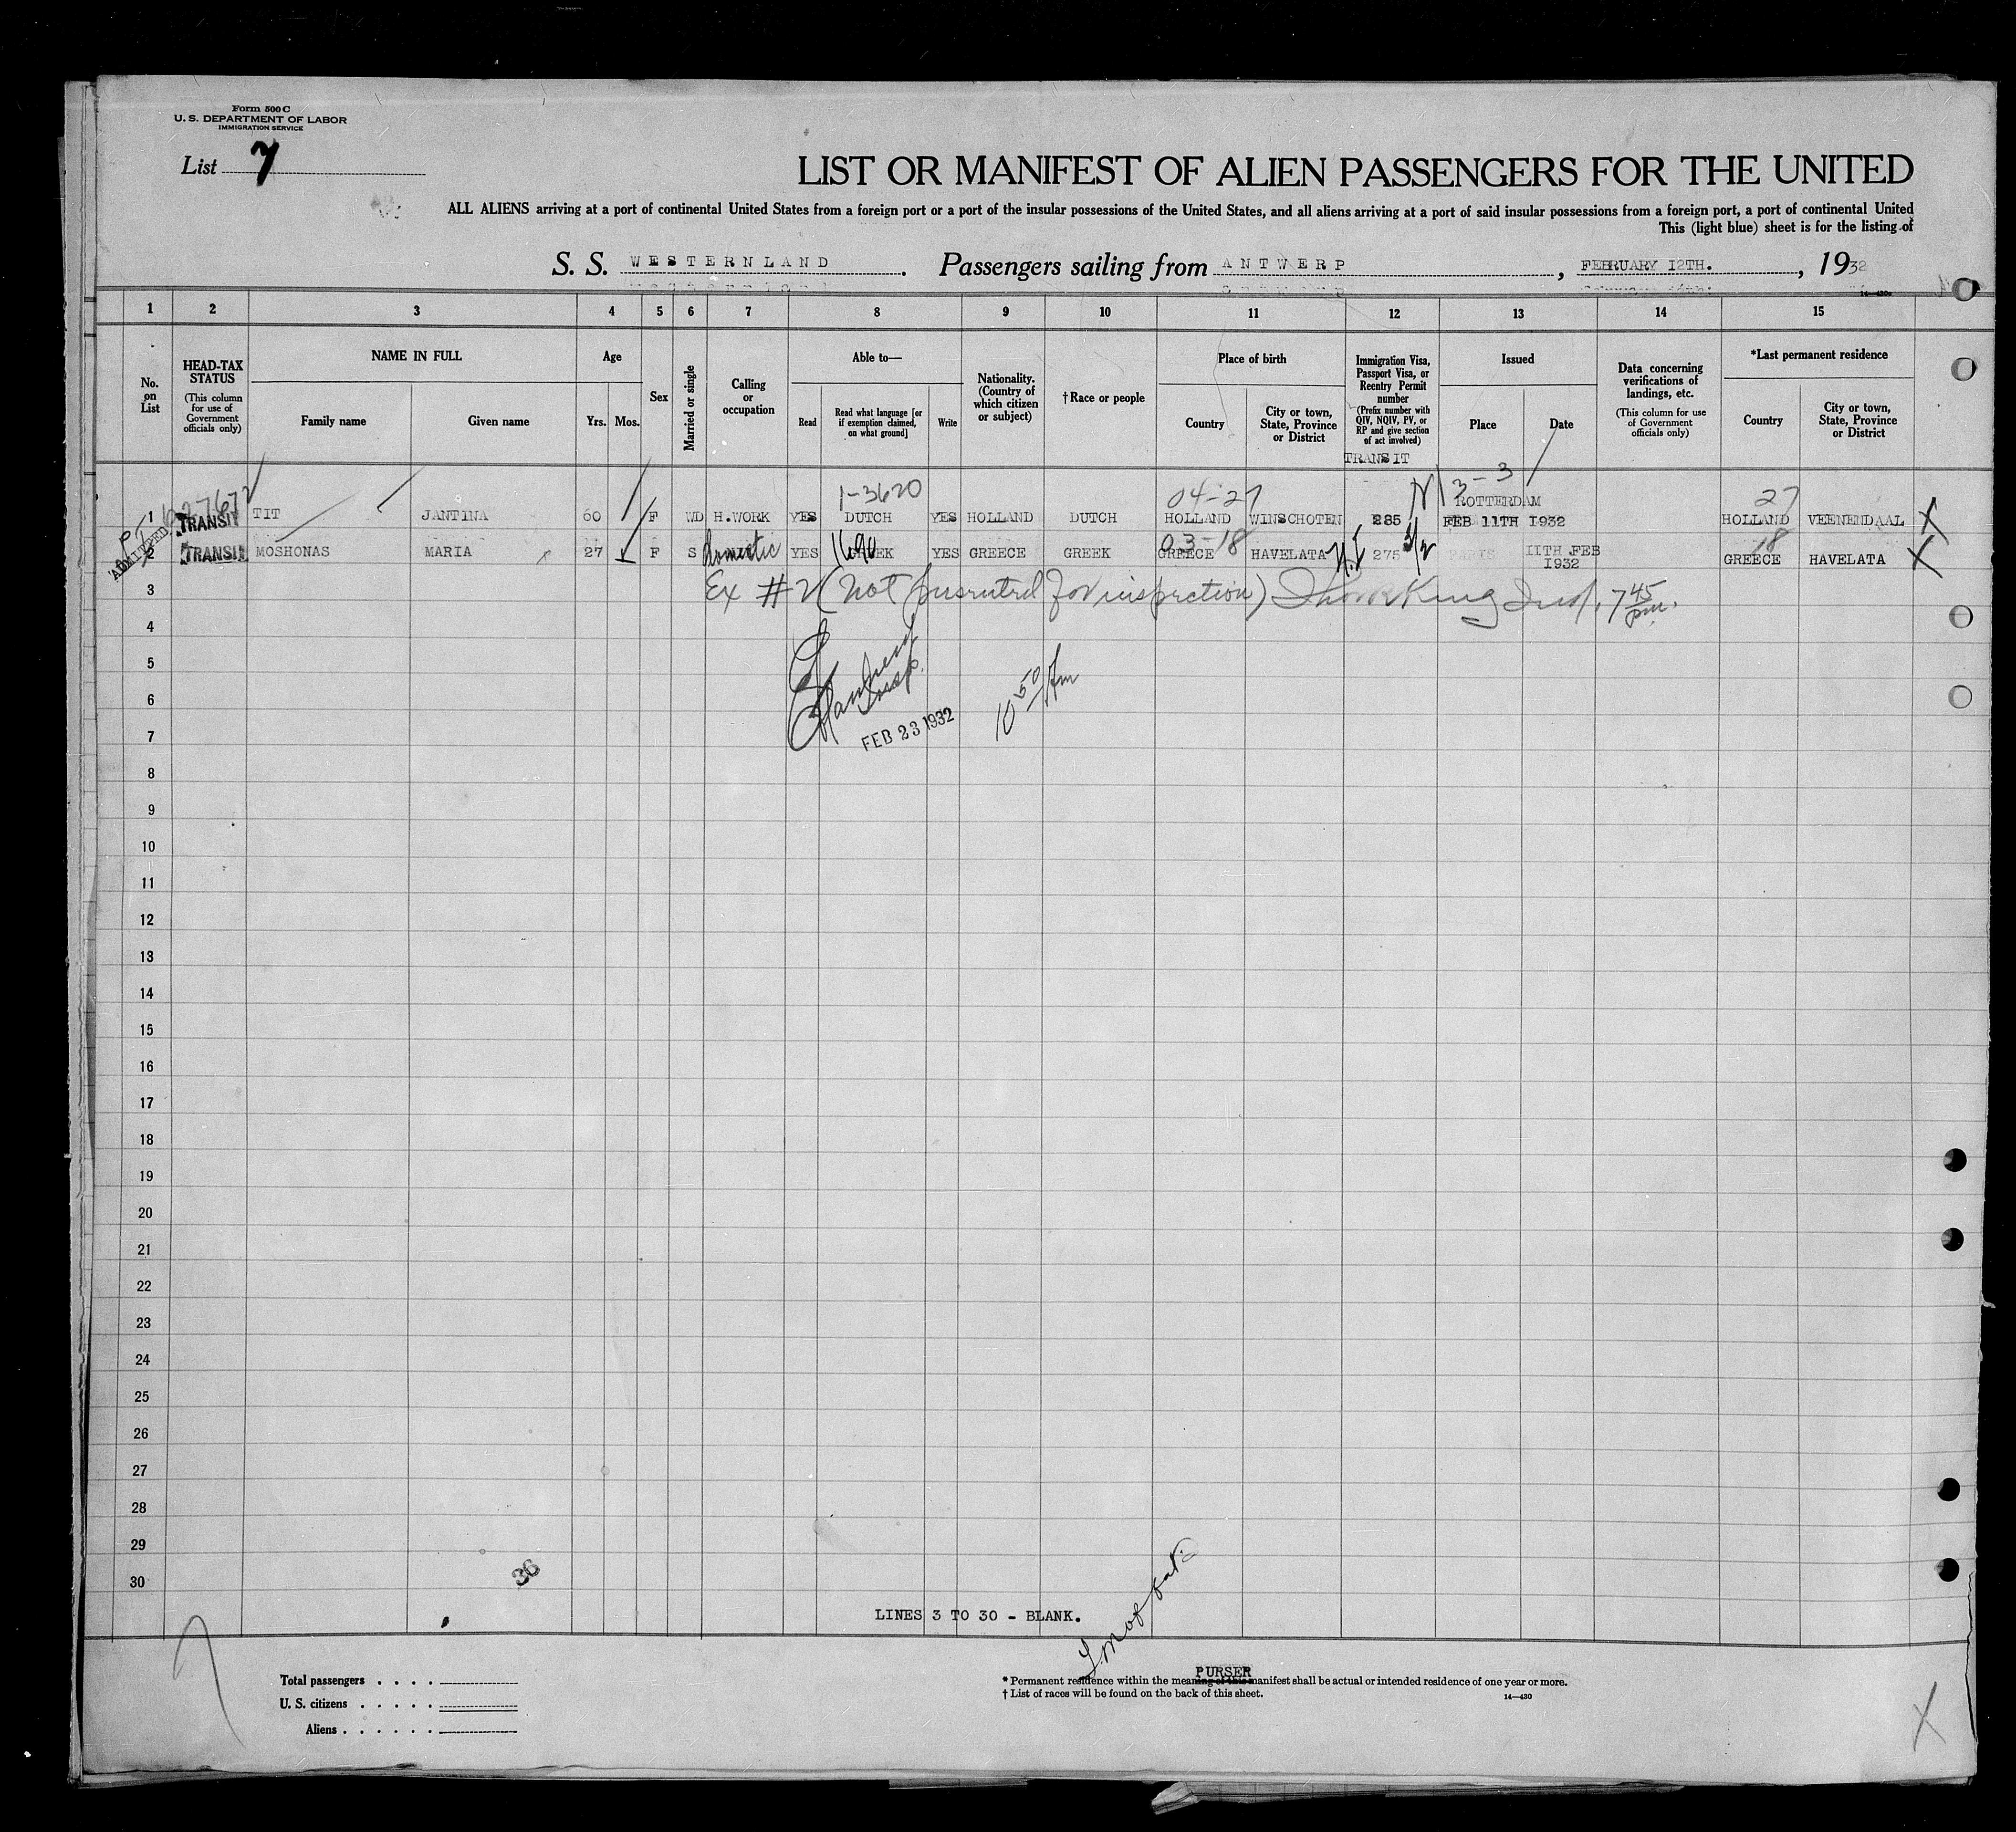 Form 500 C
U. S. DEPARTMENT OF LABOR
IMMIGRATION SERVICE
List 7
LIST OR MANIFEST OF ALIEN PASSENGERS FOR THE UNITED
ALL ALIENS arriving at a port of continental United States from a foreign port or a port of the insular possessions of the United States, and all aliens arriving at a port of said insular possessions from a foreign port, a port of continental United
This (light blue) sheet is for the listing of
S. S. WESTERNLAND. Passengers sailing from ANTWERP, FEBRUARY 12TH., 1932
14—430
1 2 3 4 5 6 7 8 9 10 11 12 13 14 15
No. on List
HEAD-TAX STATUS (This column for use of Government officials only)
NAME IN FULL
Family name Given name
Age
Yrs. Mos.
Sex
Married or single
Calling or occupation
Able to—
Read Read what language [or if exemption claimed, on what ground] Write
Nationality. (Country of which citizen or subject)
†Race or people
Place of birth
Country City or town, State, Province or District
Immigration Visa, Passport Visa, or Reentry Permit number (Prefix number with QIV, NQIV, PV, or RP and give section of act involved)
TRANSIT
Issued
Place Date
Data concerning verifications of landings, etc. (This column for use of Government officials only)
*Last permanent residence
Country City or town, State, Province or District
1-3620 04-27 3-3 27
ROTTERDAM
1 TRANSIT TIT JANTINA 60 F WD H.WORK YES DUTCH YES HOLLAND DUTCH HOLLAND WINSCHOTEN 285 FEB 11TH 1932 HOLLAND VEENENDAAL X
ADMITTED
03-18 18
2 TRANSIT MOSHONAS MARIA 27 F S domestic YES GREEK YES GREECE GREEK GREECE HAVELATA 275 PARIS 11TH FEB 1932 GREECE HAVELATA X
3 Ex #2 (Not presented for inspection) King Insp. 7 45 pm.
4
5
Insp.
6
10 50 Am
7
FEB 23 1932
8
9
10
11
12
13
14
15
16
17
18
19
20
21
22
23
24
25
26
27
28
29
36
30
LINES 3 TO 30 - BLANK.
PURSER
7
Total passengers
U. S. citizens
Aliens
* Permanent residence within the meaning of this manifest shall be actual or intended residence of one year or more.
† List of races will be found on the back of this sheet.
14—430
X